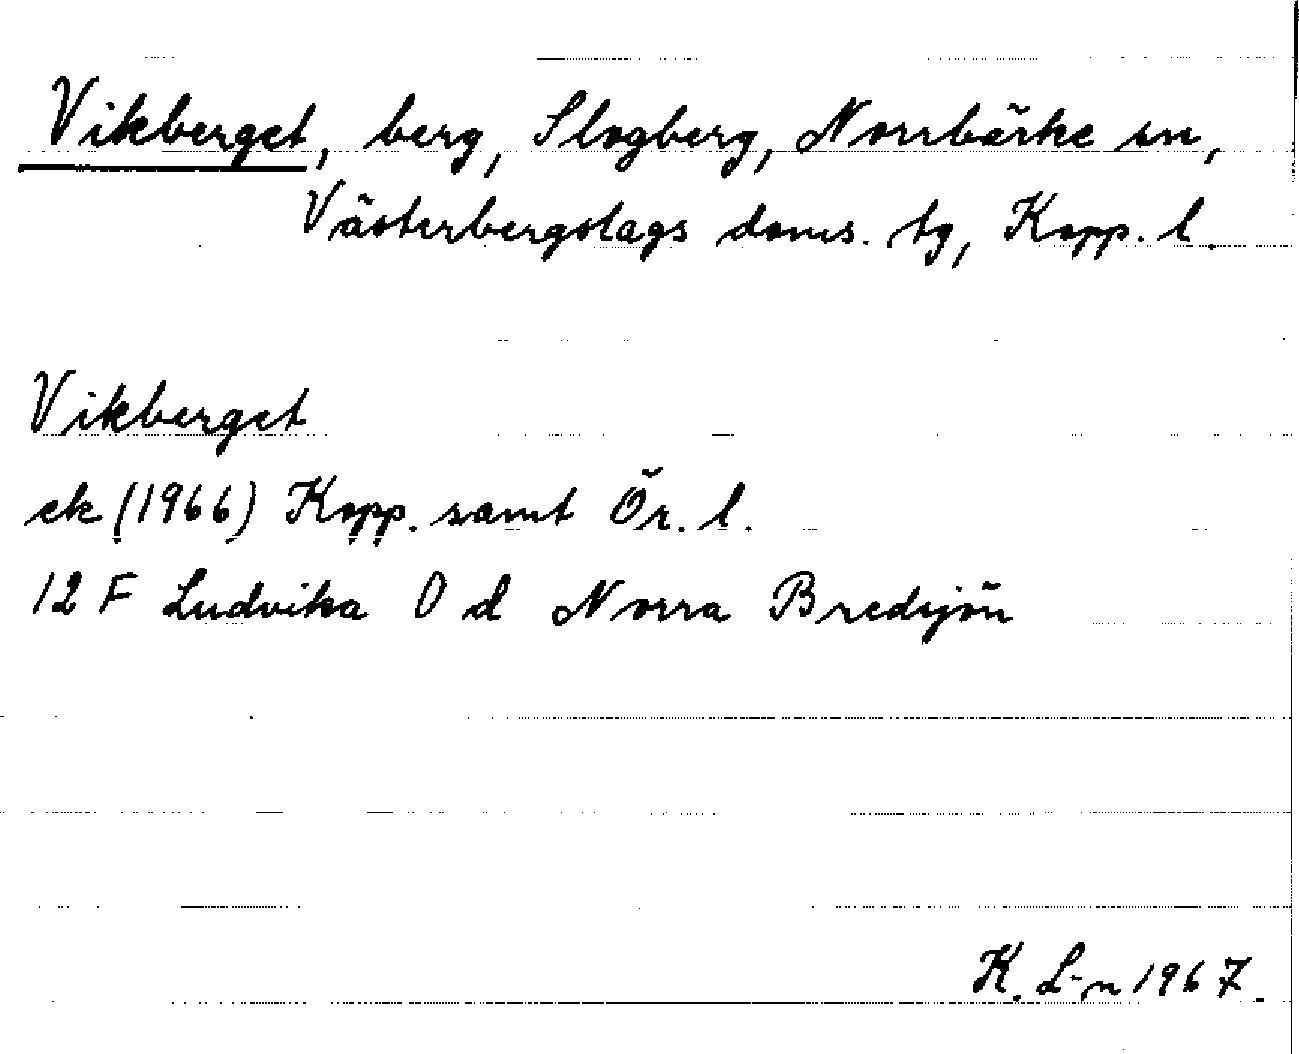 Vikberget, berg, Slogberg, Norrbärke sn,
Västerbergslags doms. tg, Kopp. l.
Vikberget
ek (1966) Kopp. samt Ör. l.
12 F Ludvika 0 d Norra Bredsjön
K. L-n 1967.